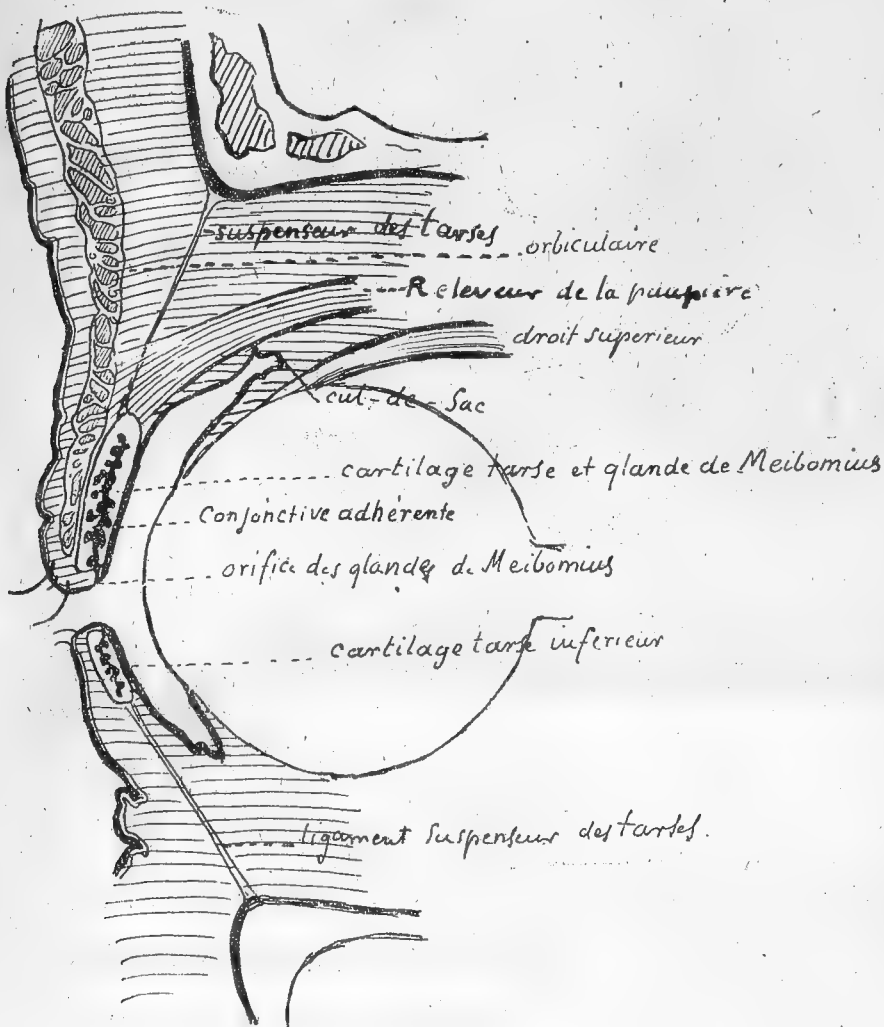 suspenseur des tarses
orbiculaire
Releveur de la paupière
droit superieur
cul-de-sac
cartilage tarse et glande de Meibomius
Conjonctive adhérente
orifice des glandes de Meibomius
cartilage tarse inferieur
ligament suspenseur des tarses.